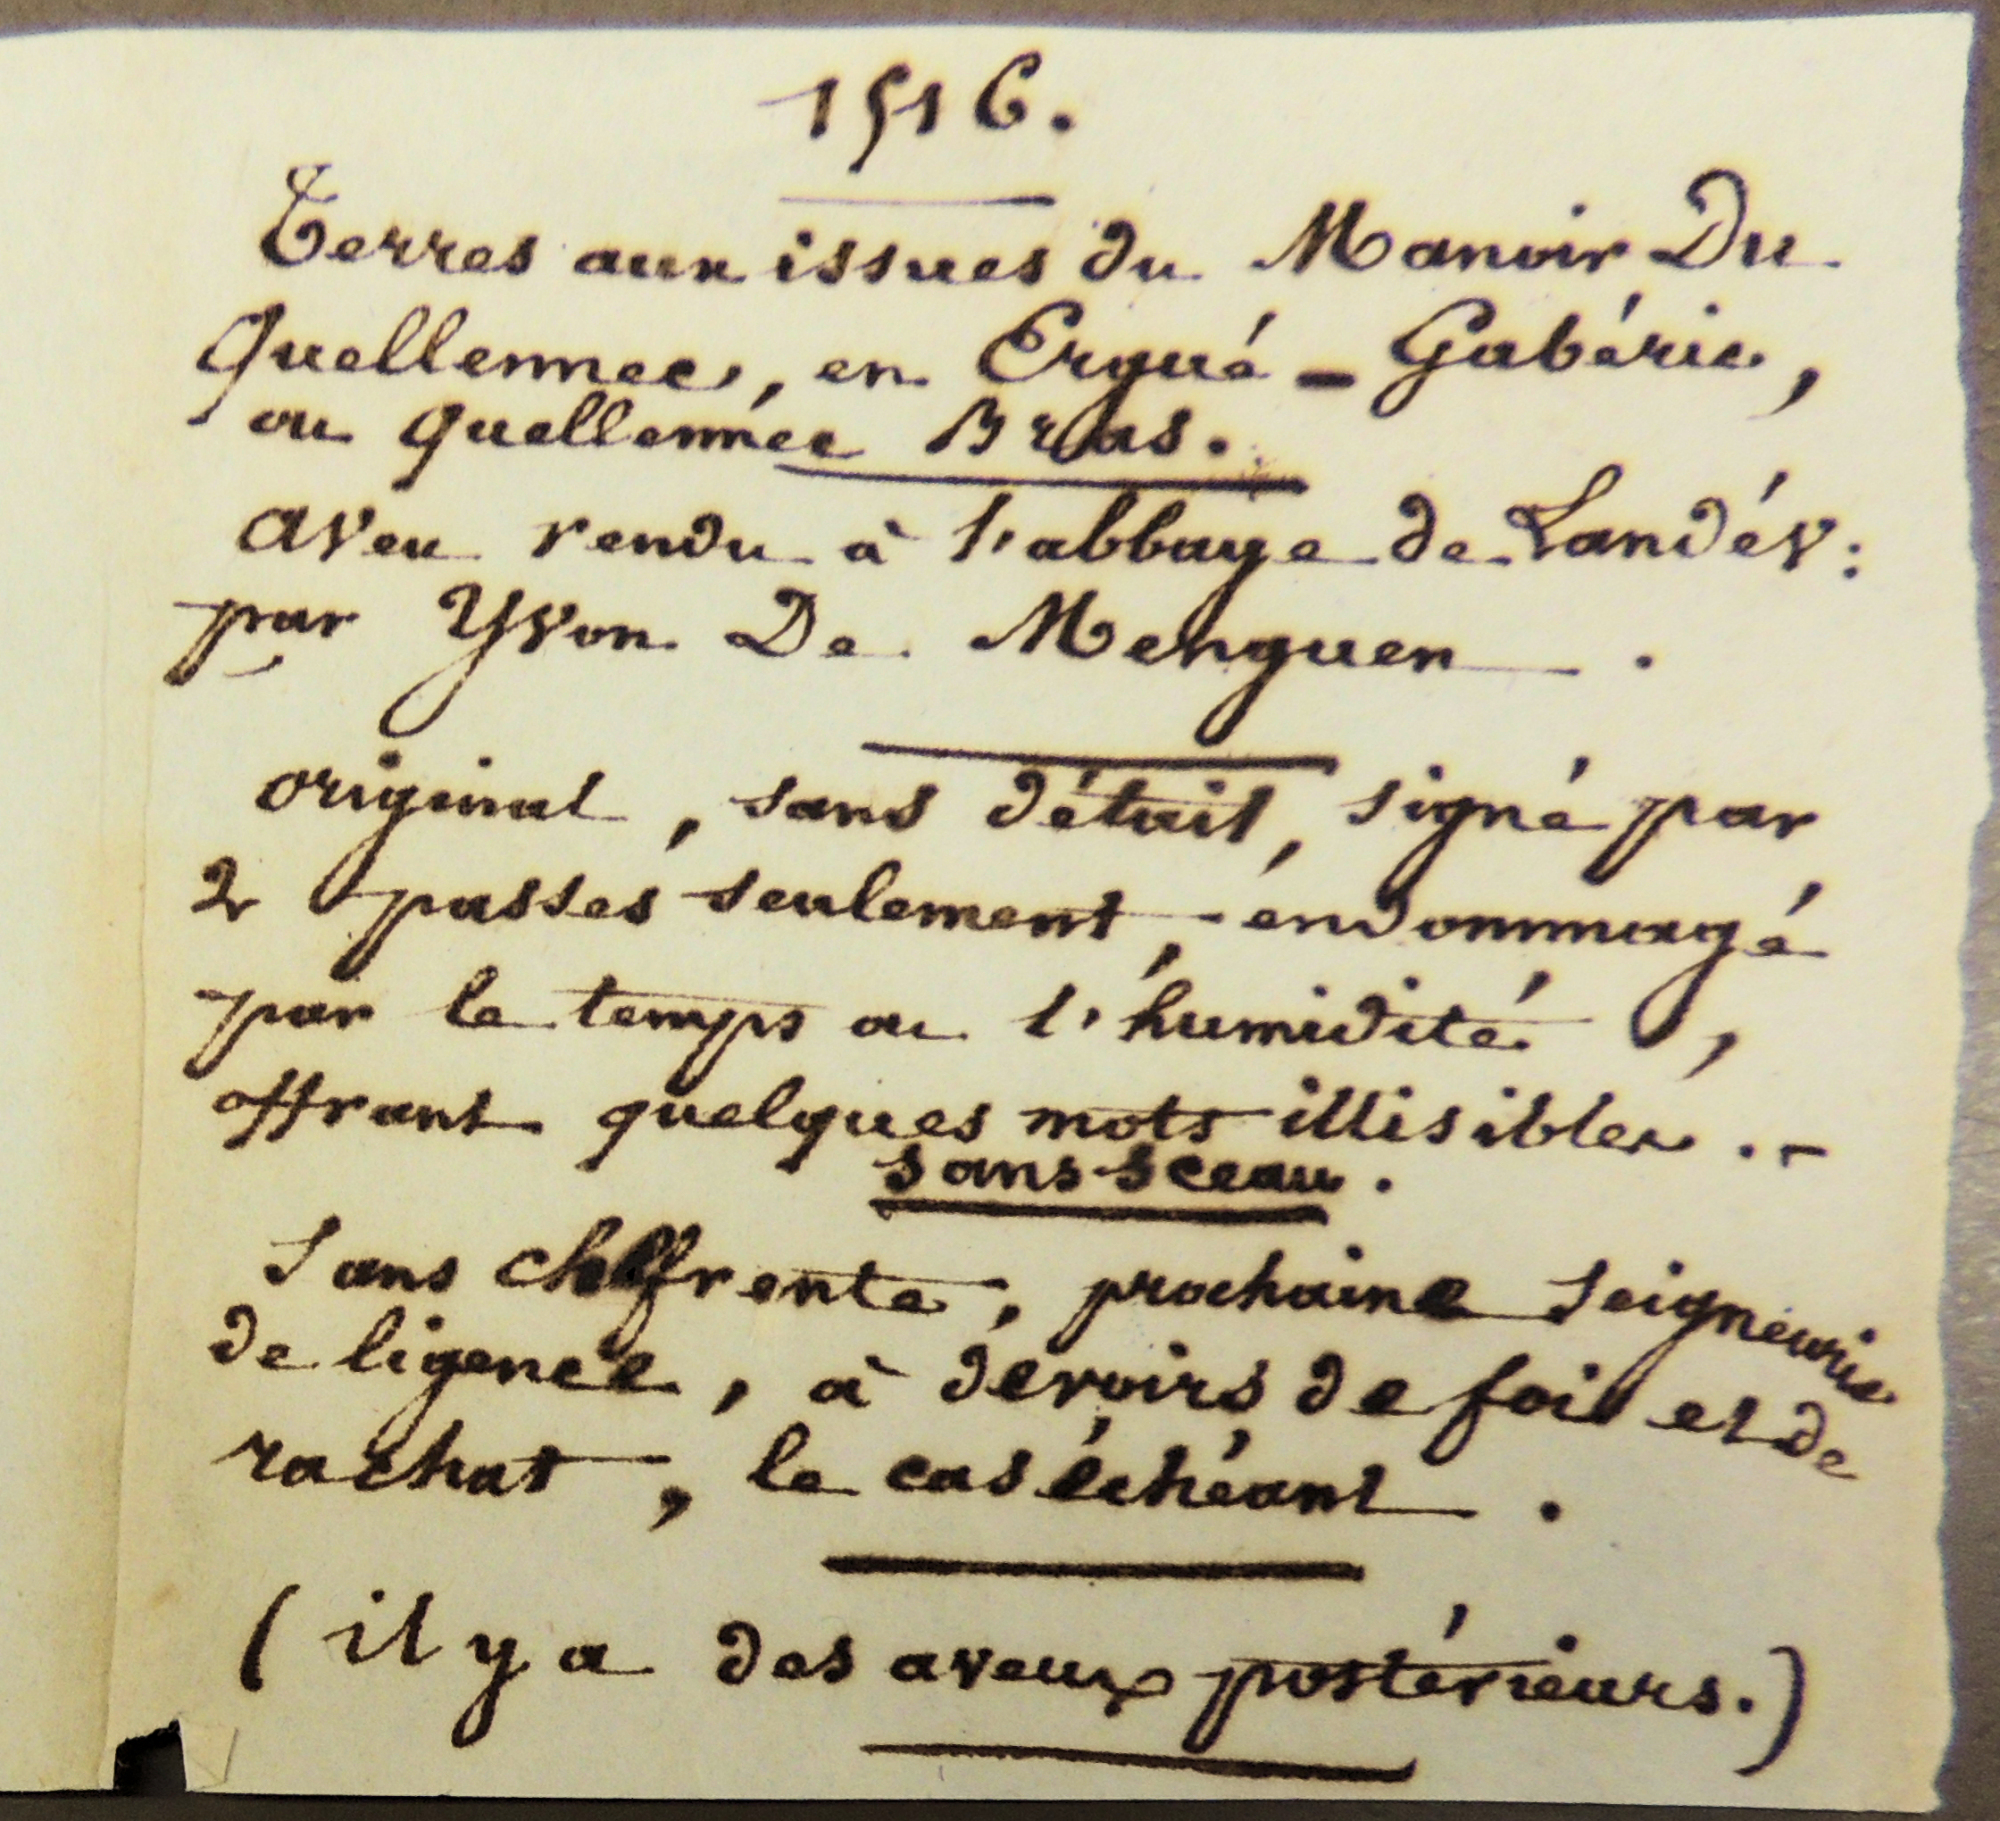 1516.
Terres aux issues du Manoir Du
Quellennec, en Ergué-Gabéric,
ou Quellennéc Bras.
aveu rendu à l'abbaye de Landév:
par Yvon De Menguen.
original, sans détail, signé par
2 passes seulement, endommagé
par le temps ou l'humidité,
offrant quelques mots illisibles.-
sans sceau.
Sans cheffrente, prochaine Seigneurie
de ligence, à devoirs de foi et de
rachat, le cas échéant.
(il y a des aveux postérieurs.)